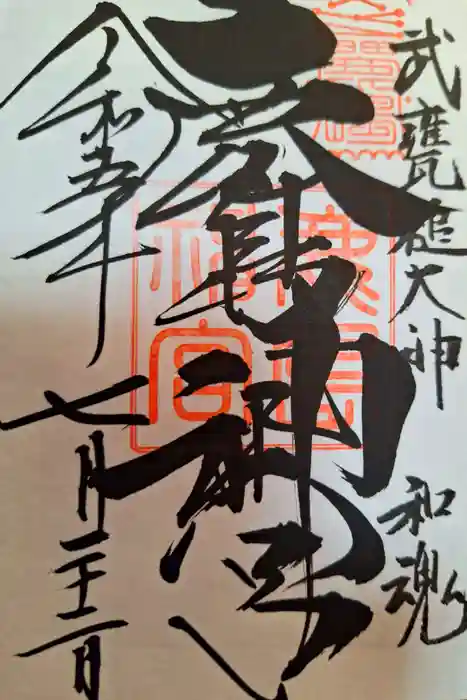 武甕槌大神 和魂
鹿島神宮
令和五年
七月二十二日
鹿島
神宮